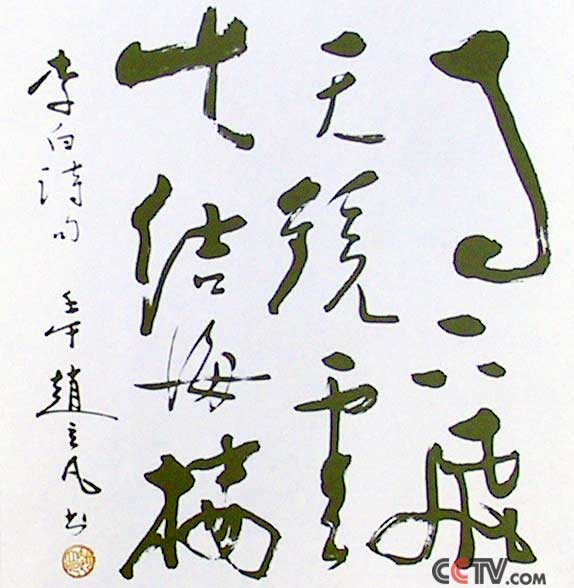 月下飛
天鏡雲
生結海樓
李白詩句 壬午 趙立凡书
CCTV.com